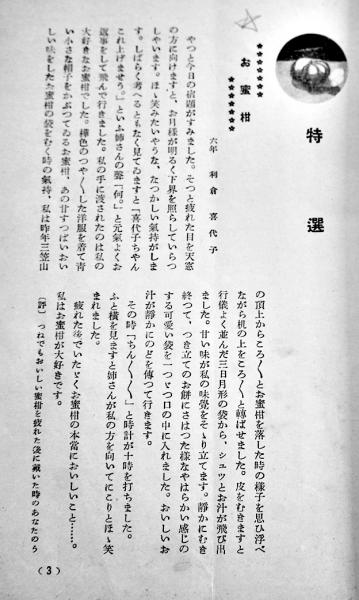 特選
お蜜柑
六年 利倉喜代子
やつと今日の宿題がすみました。そつと疲れた目を天窓
の方に向けますと、お月樣が明るく下界を照らしていらつ
しやいます。ほゝ笑みたいやうな、なつかしい氣持がしま
す。しばらく考へるともなく見てゐますと「喜代子ちやん
これ上げませう。」といふ姉さんの聲「何。」と元氣よくお
返事をして飛んで行きました。私の手に渡されたのは私の
大好きなお蜜柑でした。樺色のつや〱した洋服を着て靑
い小さな帽子をかぶつてゐるお蜜柑、あの甘すつぱいおい
しい味をしたお蜜柑の袋をむく時の氣持、私は昨年三笠山
の頂上からころ〱とお蜜柑を落した時の樣子を思ひ浮べ
ながら机の上をころ〱と轉ばせました。皮をむきますと
行儀よく並んだ三日月形の袋から、シュッとお汁が飛び出
ました。甘い味が私の味覺をそゝり立てます。靜かにむき
終つて、つき立てのお餅にさはつた樣なやはらかい感じの
する可愛い袋を一つ〱口の中に入れました。おいしいお
汁が靜かにのどを傳つて行きます。
その時「ちん〱〱」と時計が十時を打ちました。
ふと橫を見ますと姉さんが私の方を向いてにこりとほゝ笑
まれました。
疲れた後でいたゞくお蜜柑の本當においしいこと……。
私はお蜜柑が大好きです。
〔評〕つねでもおいしい蜜柑を疲れた後に戴いた時のあなたのう
(3)